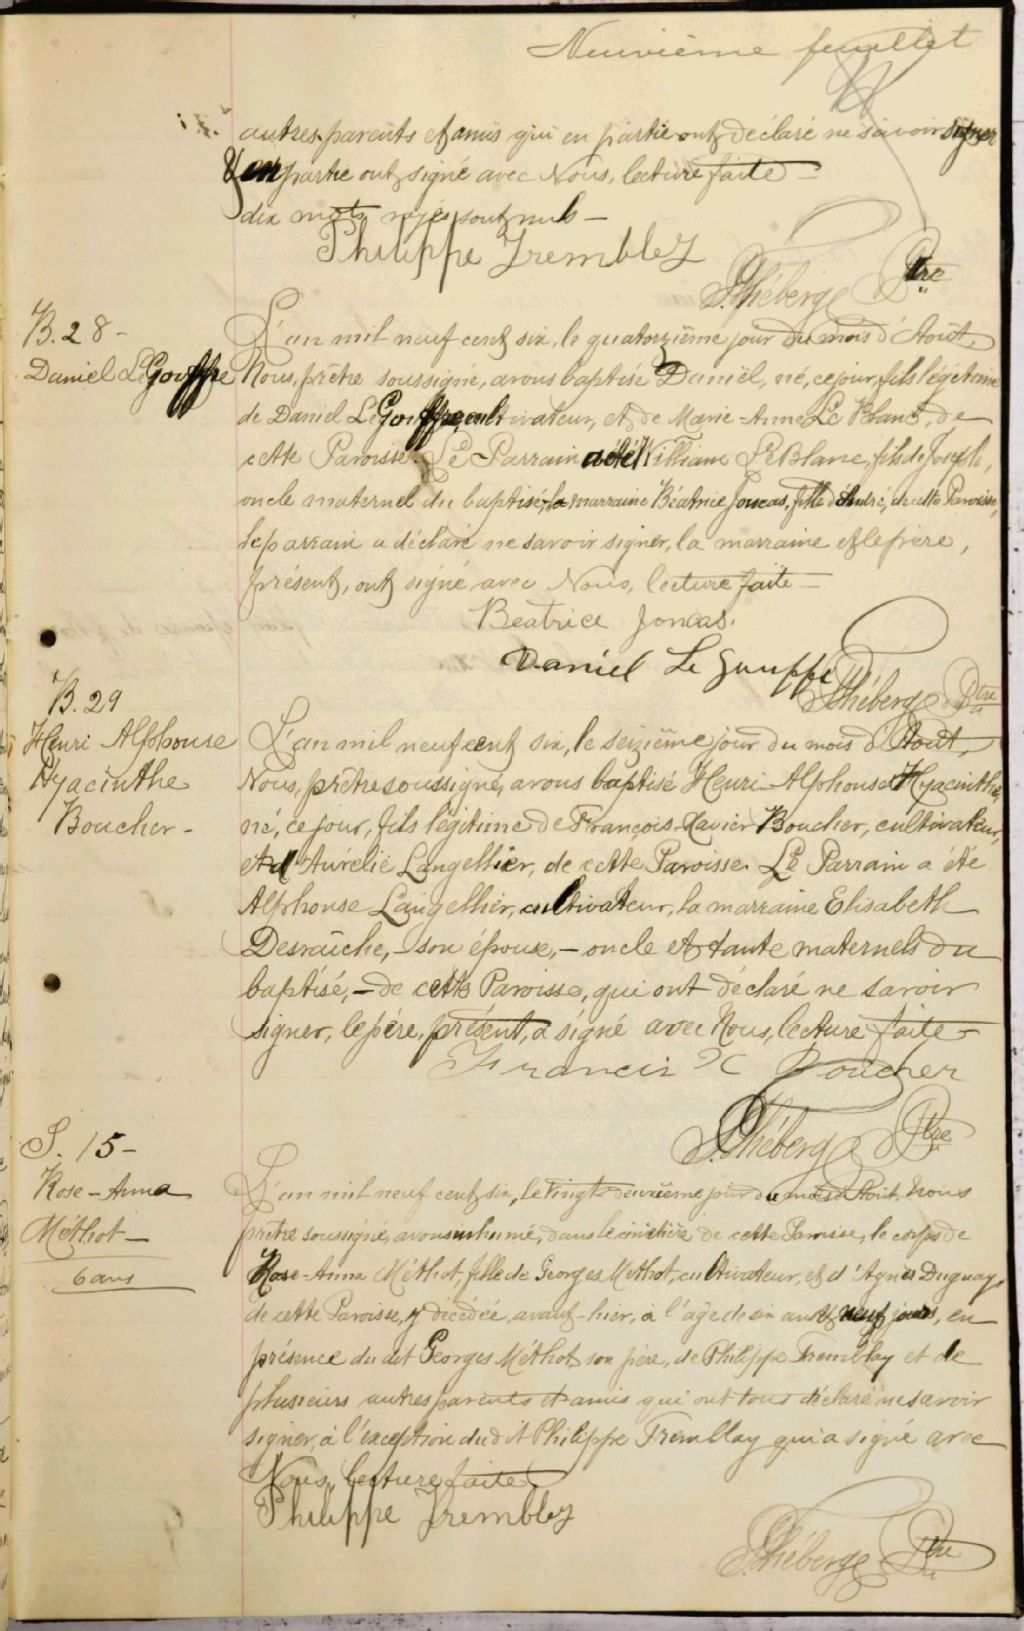 Neuvième feuillet
autres parents et amis qui en partie ont déclaré ne savoir signer
& en partie ont signé avec Nous, lecture faite —
dix mots rayés sont nuls —
Philippe Tremblay
Théberge Ptre
B. 28 -
Daniel LeGouffe
L'an mil neuf cent six, le quatorzième jour du mois d'Août,
Nous, prêtre soussigné, avons baptisé Daniel, né, ce jour, fils légitime
de Daniel LeGouffe, cultivateur, et de Marie-Anne Le Blanc, de
cette Paroisse. Le Parrain a été William LeBlanc, fils de Joseph,
oncle maternel du baptisé, la marraine Béatrice Joncas, fille d'André, de cette Paroisse,
le parrain a déclaré ne savoir signer, la marraine et le père,
présent, ont signé avec Nous, lecture faite —
Beatrice Joncas.
Daniel Le Gouffe
Théberge Ptre
B. 29
Henri Alphonse
Hyacinthe
Boucher -
L'an mil neuf cent six, le seizième jour du mois d'Août,
Nous, prêtre soussigné, avons baptisé Henri-Alphonse Hyacinthe,
né, ce jour, fils légitime de François-Xavier Boucher, cultivateur,
et d'Aurélie Langellier, de cette Paroisse. Le Parrain a été
Alphonse Langellier, cultivateur, la marraine Elisabeth
son épouse, — oncle et tante maternels du
baptisé, — de cette Paroisse, qui ont déclaré ne savoir
signer, le père, présent, a signé avec Nous, lecture faite —
Francis X Boucher
Théberge Ptre
S. 15 -
Rose-Anna
Méthot —
6 ans
L'an mil neuf cent six, le vingt-deuxième jour du mois d'Août, Nous
prêtre soussigné, avons inhumé, dans le cimetière de cette Paroisse, le corps de
Rose-Anna Méthot, fille de Georges Méthot, cultivateur, et d'Agnès Duguay,
de cette Paroisse, y décédée, avant-hier, à l'âge de six ans & neuf jours, en
présence du dit Georges Méthot son père, de Philippe Tremblay et de
plusieurs autres parents et amis qui ont tous déclaré ne savoir
signer, à l'exception du dit Philippe Tremblay qui a signé avec
Nous, lecture faite —
Philippe Tremblay
Théberge Ptre